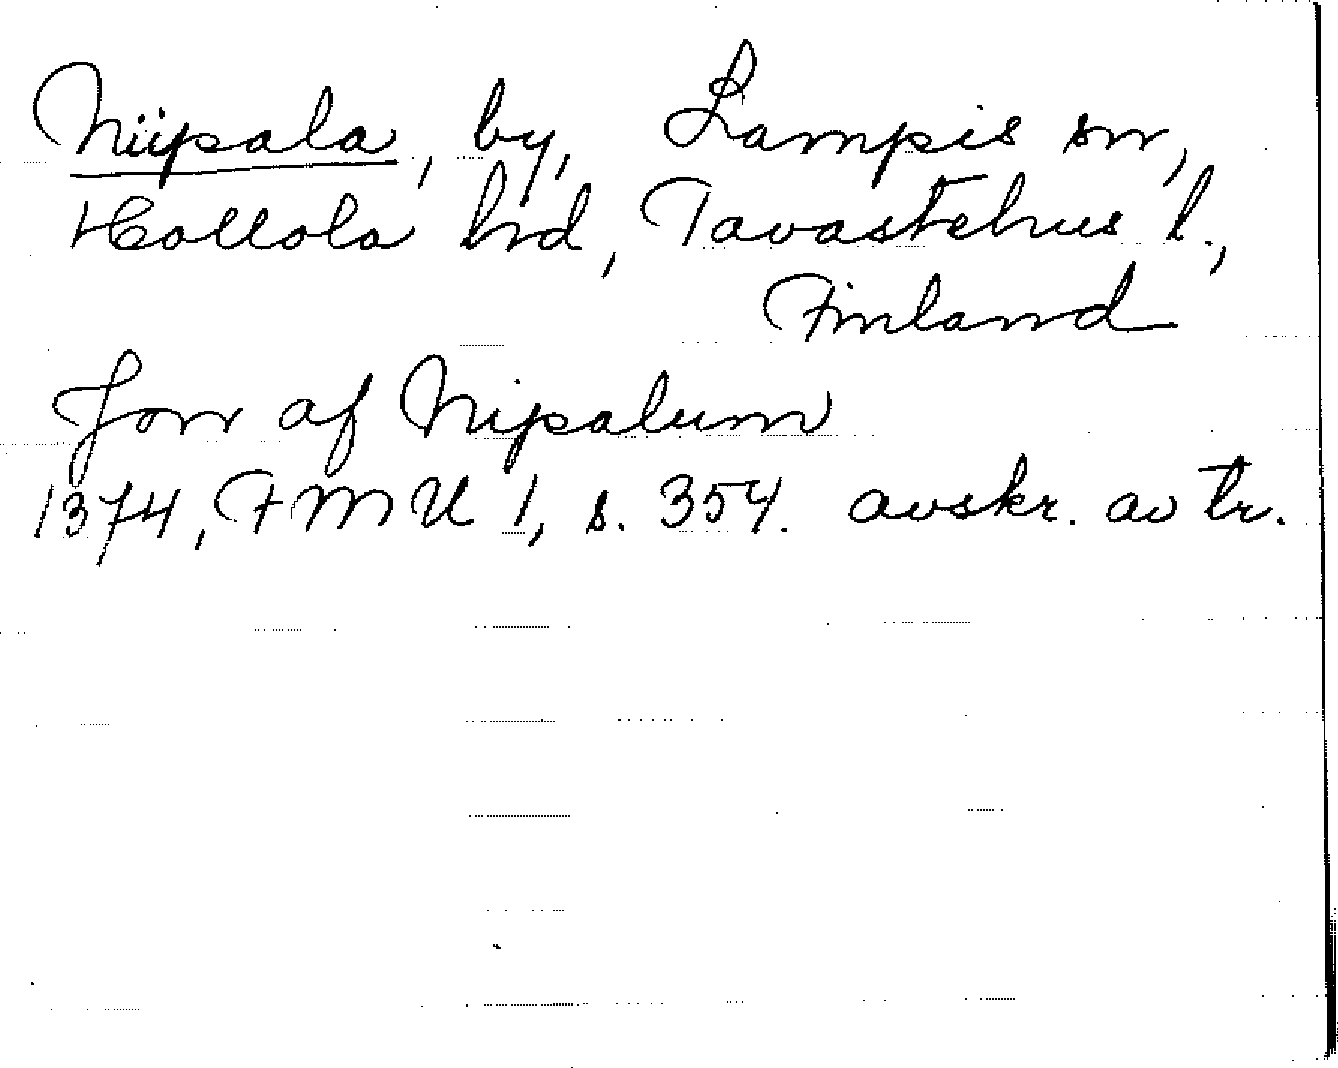 Niipala, by, Lampis sn,
Hollola hrd, Tavastehus l.,
Finland
Jon af Nipalum
1374, FMU 1, s. 354. avskr. av tr.